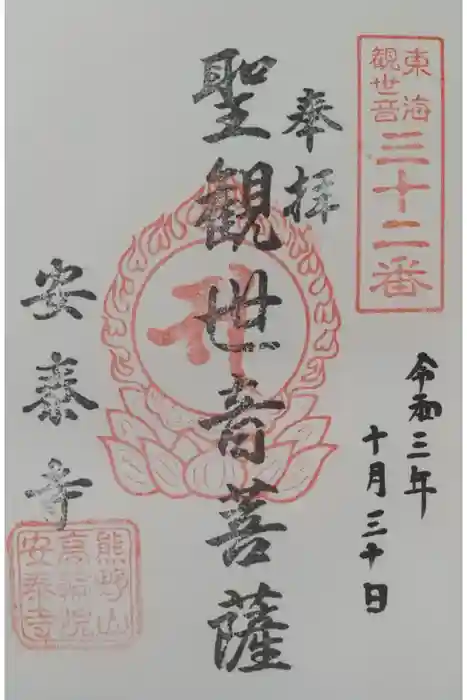 東海
観世音
三十二番
奉拝
令和三年
十月三十日
聖観世音菩薩
安泰寺
熊野山
高福院
安泰寺